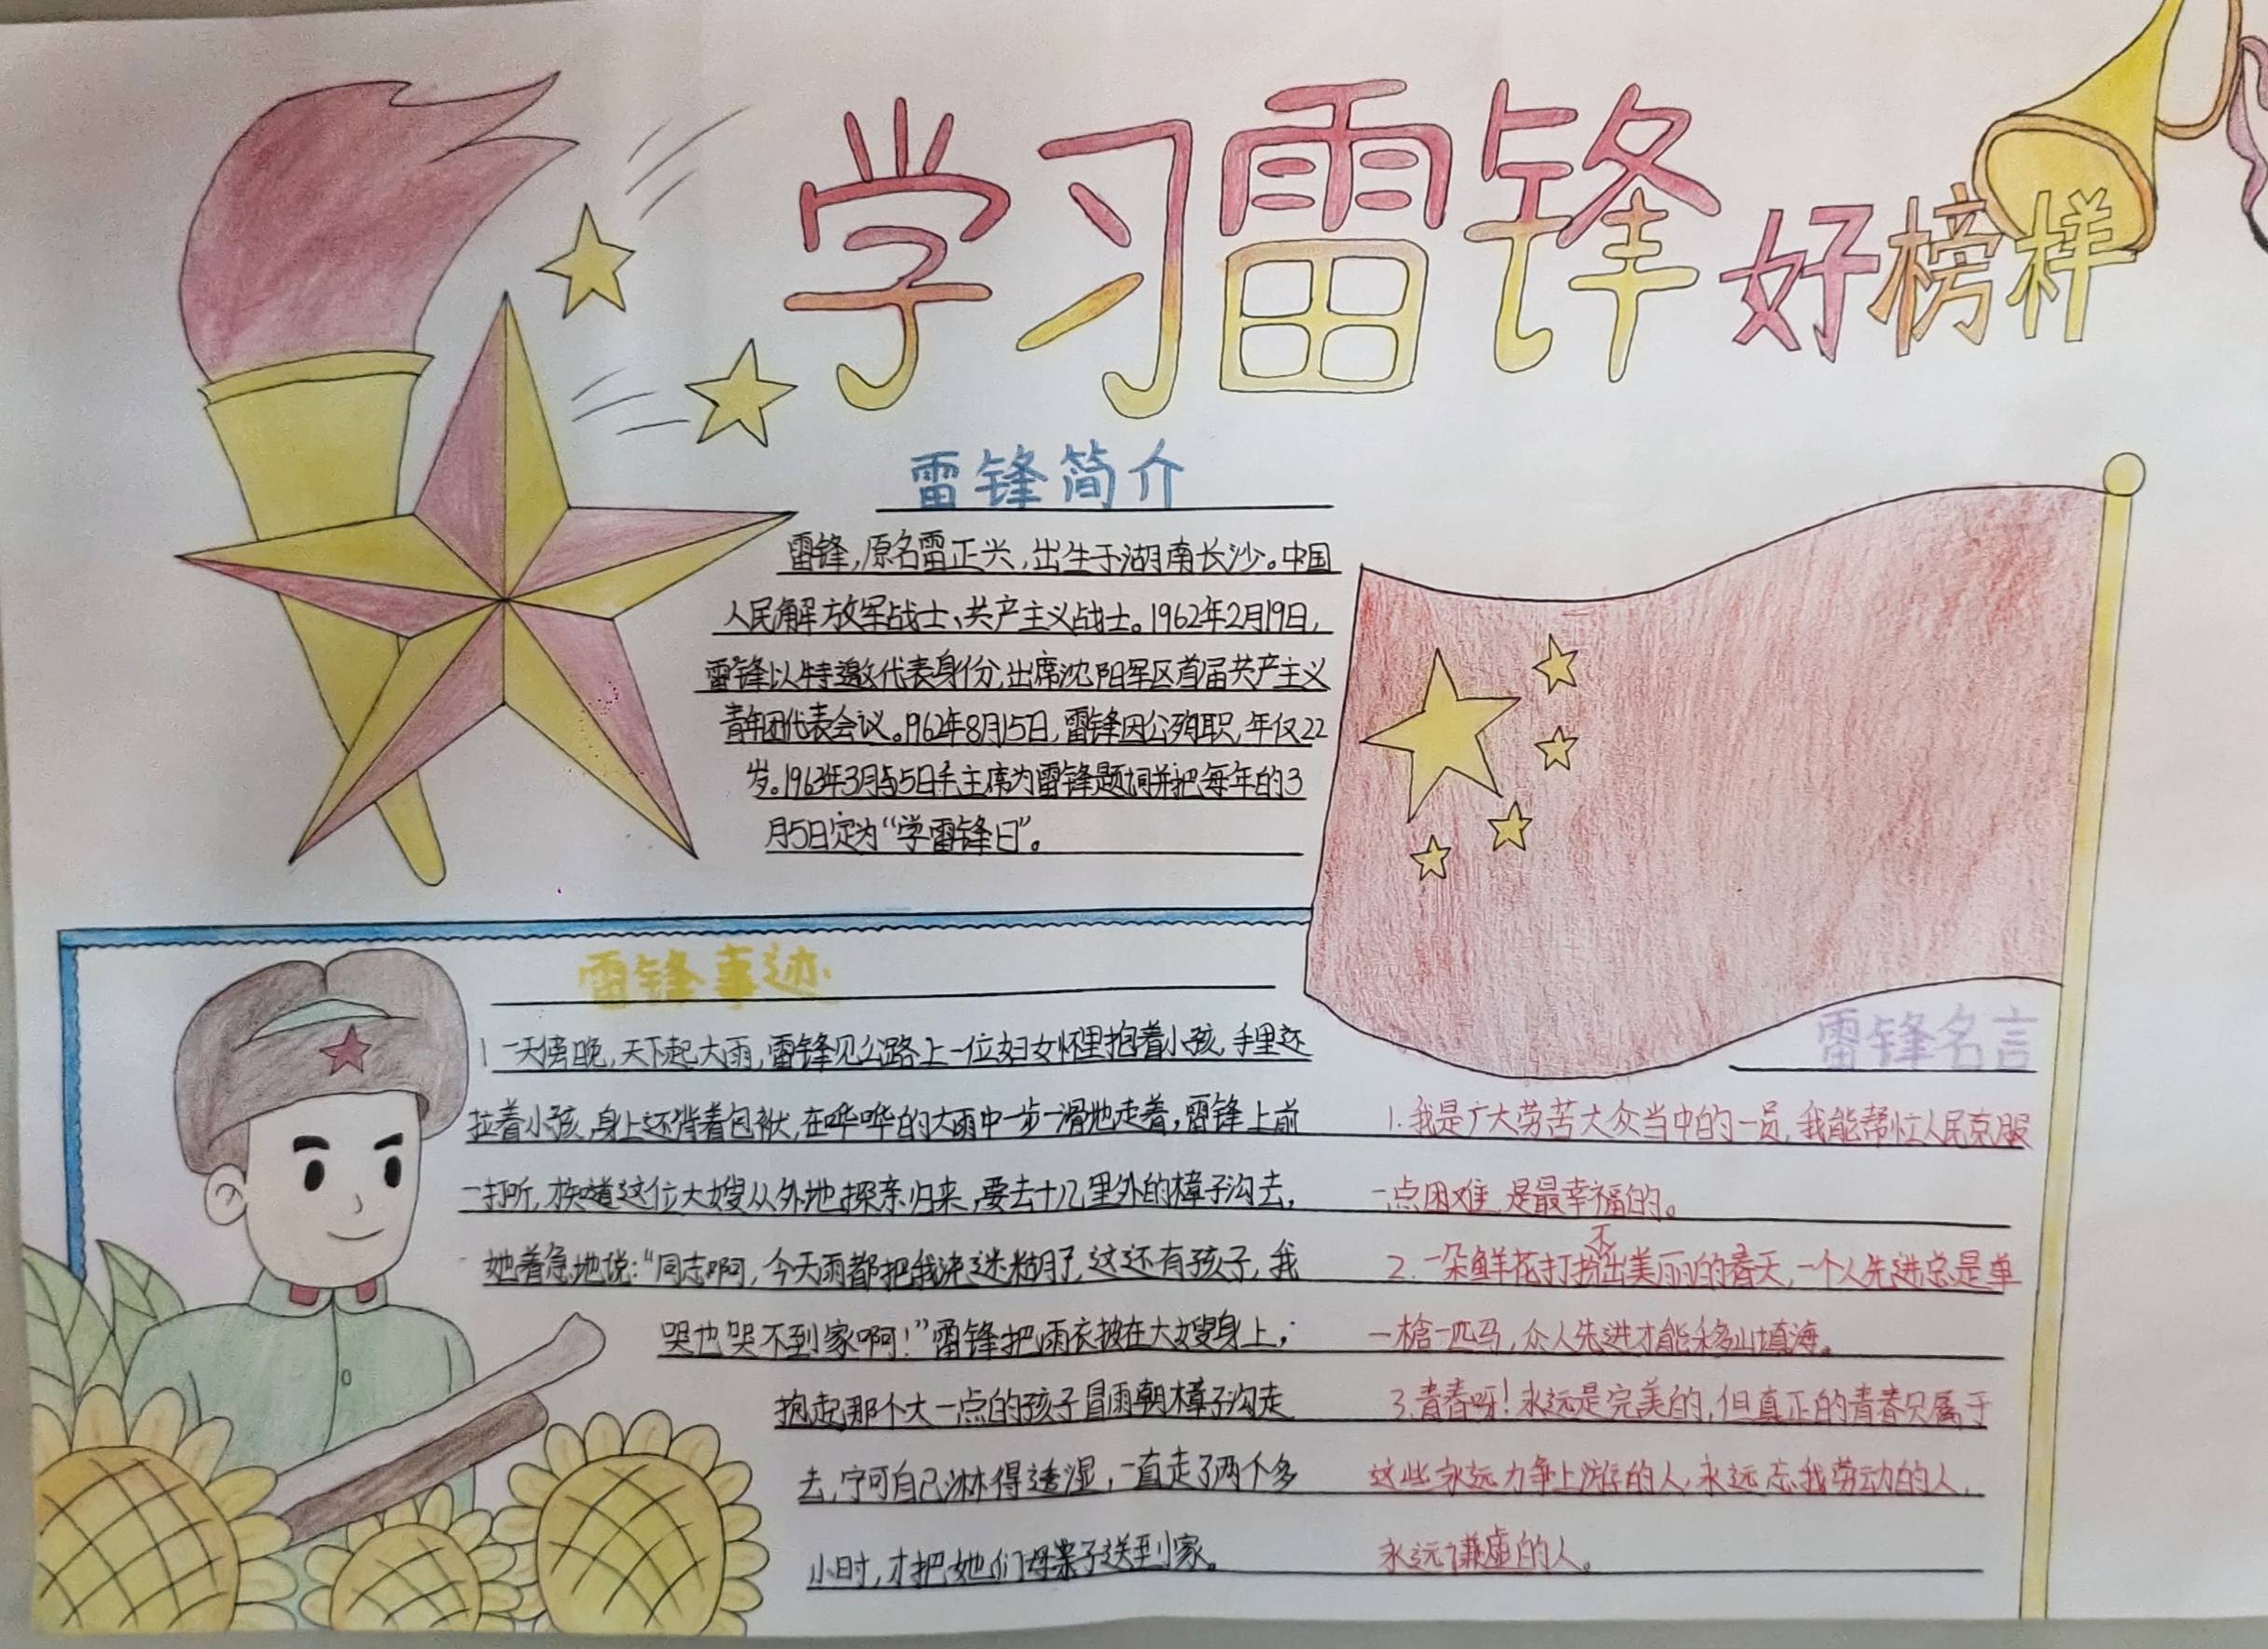 学习雷锋好榜样
雷锋简介
雷锋,原名雷正兴,出生于湖南长沙。中国
人民解放军战士、共产主义战士。1962年2月19日,
雷锋以特邀代表身份,出席沈阳军区首届共产主义
青年团代表会议。1962年8月15日,雷锋因公殉职,年仅22
岁。1963年3月5日毛主席为雷锋题词并把每年的3
月5日定为“学雷锋日”。
雷锋事迹
1一天傍晚,天下起大雨,雷锋见公路上一位妇女怀里抱着小孩,手里还
拉着小孩,身上还背着包袱,在哗哗的大雨中一步一滑地走着,雷锋上前
一打听,才知道这位大嫂从外地探亲归来,要去十几里外的樟子沟去,
她着急地说:“同志啊,今天雨都把我浇迷糊了,这还有孩子,我
哭也哭不到家啊!”雷锋把雨衣披在大嫂身上,
抱起那个大一点的孩子冒雨朝樟子沟走
去,宁可自己淋得透湿,一直走了两个多
小时,才把她们母亲子送到家。
雷锋名言
1.我是广大劳苦大众当中的一员,我能帮忙人民克服
一点困难,是最幸福的。
2.一朵鲜花打扮不出美丽的春天,一个人先进总是单
一枪一匹马,众人先进才能移山填海。
3.青春呀!永远是完美的,但真正的青春只属于
这些永远力争上游的人,永远忘我劳动的人,
永远谦虚的人。